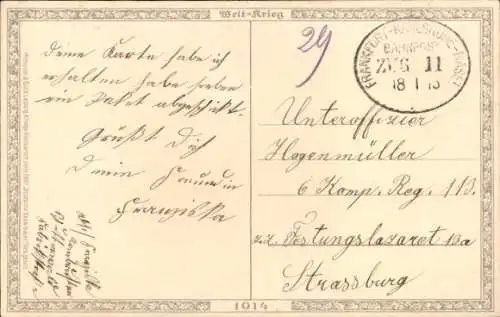 Welt-Krieg
Deine Karte habe ich
erhalten habe soeben
ein Paket abgeschickt.
Grüßt Dich
Deine Freundin
Franziska
29
FRANKFURT-KARLSRUHE-BASEL
BAHNPOST
ZUG 11
18 1 15
Unteroffizier
Hagenmüller
6 Komp. Reg. 113.
z.Z. Festungslazaret 13a
Strassburg
1914